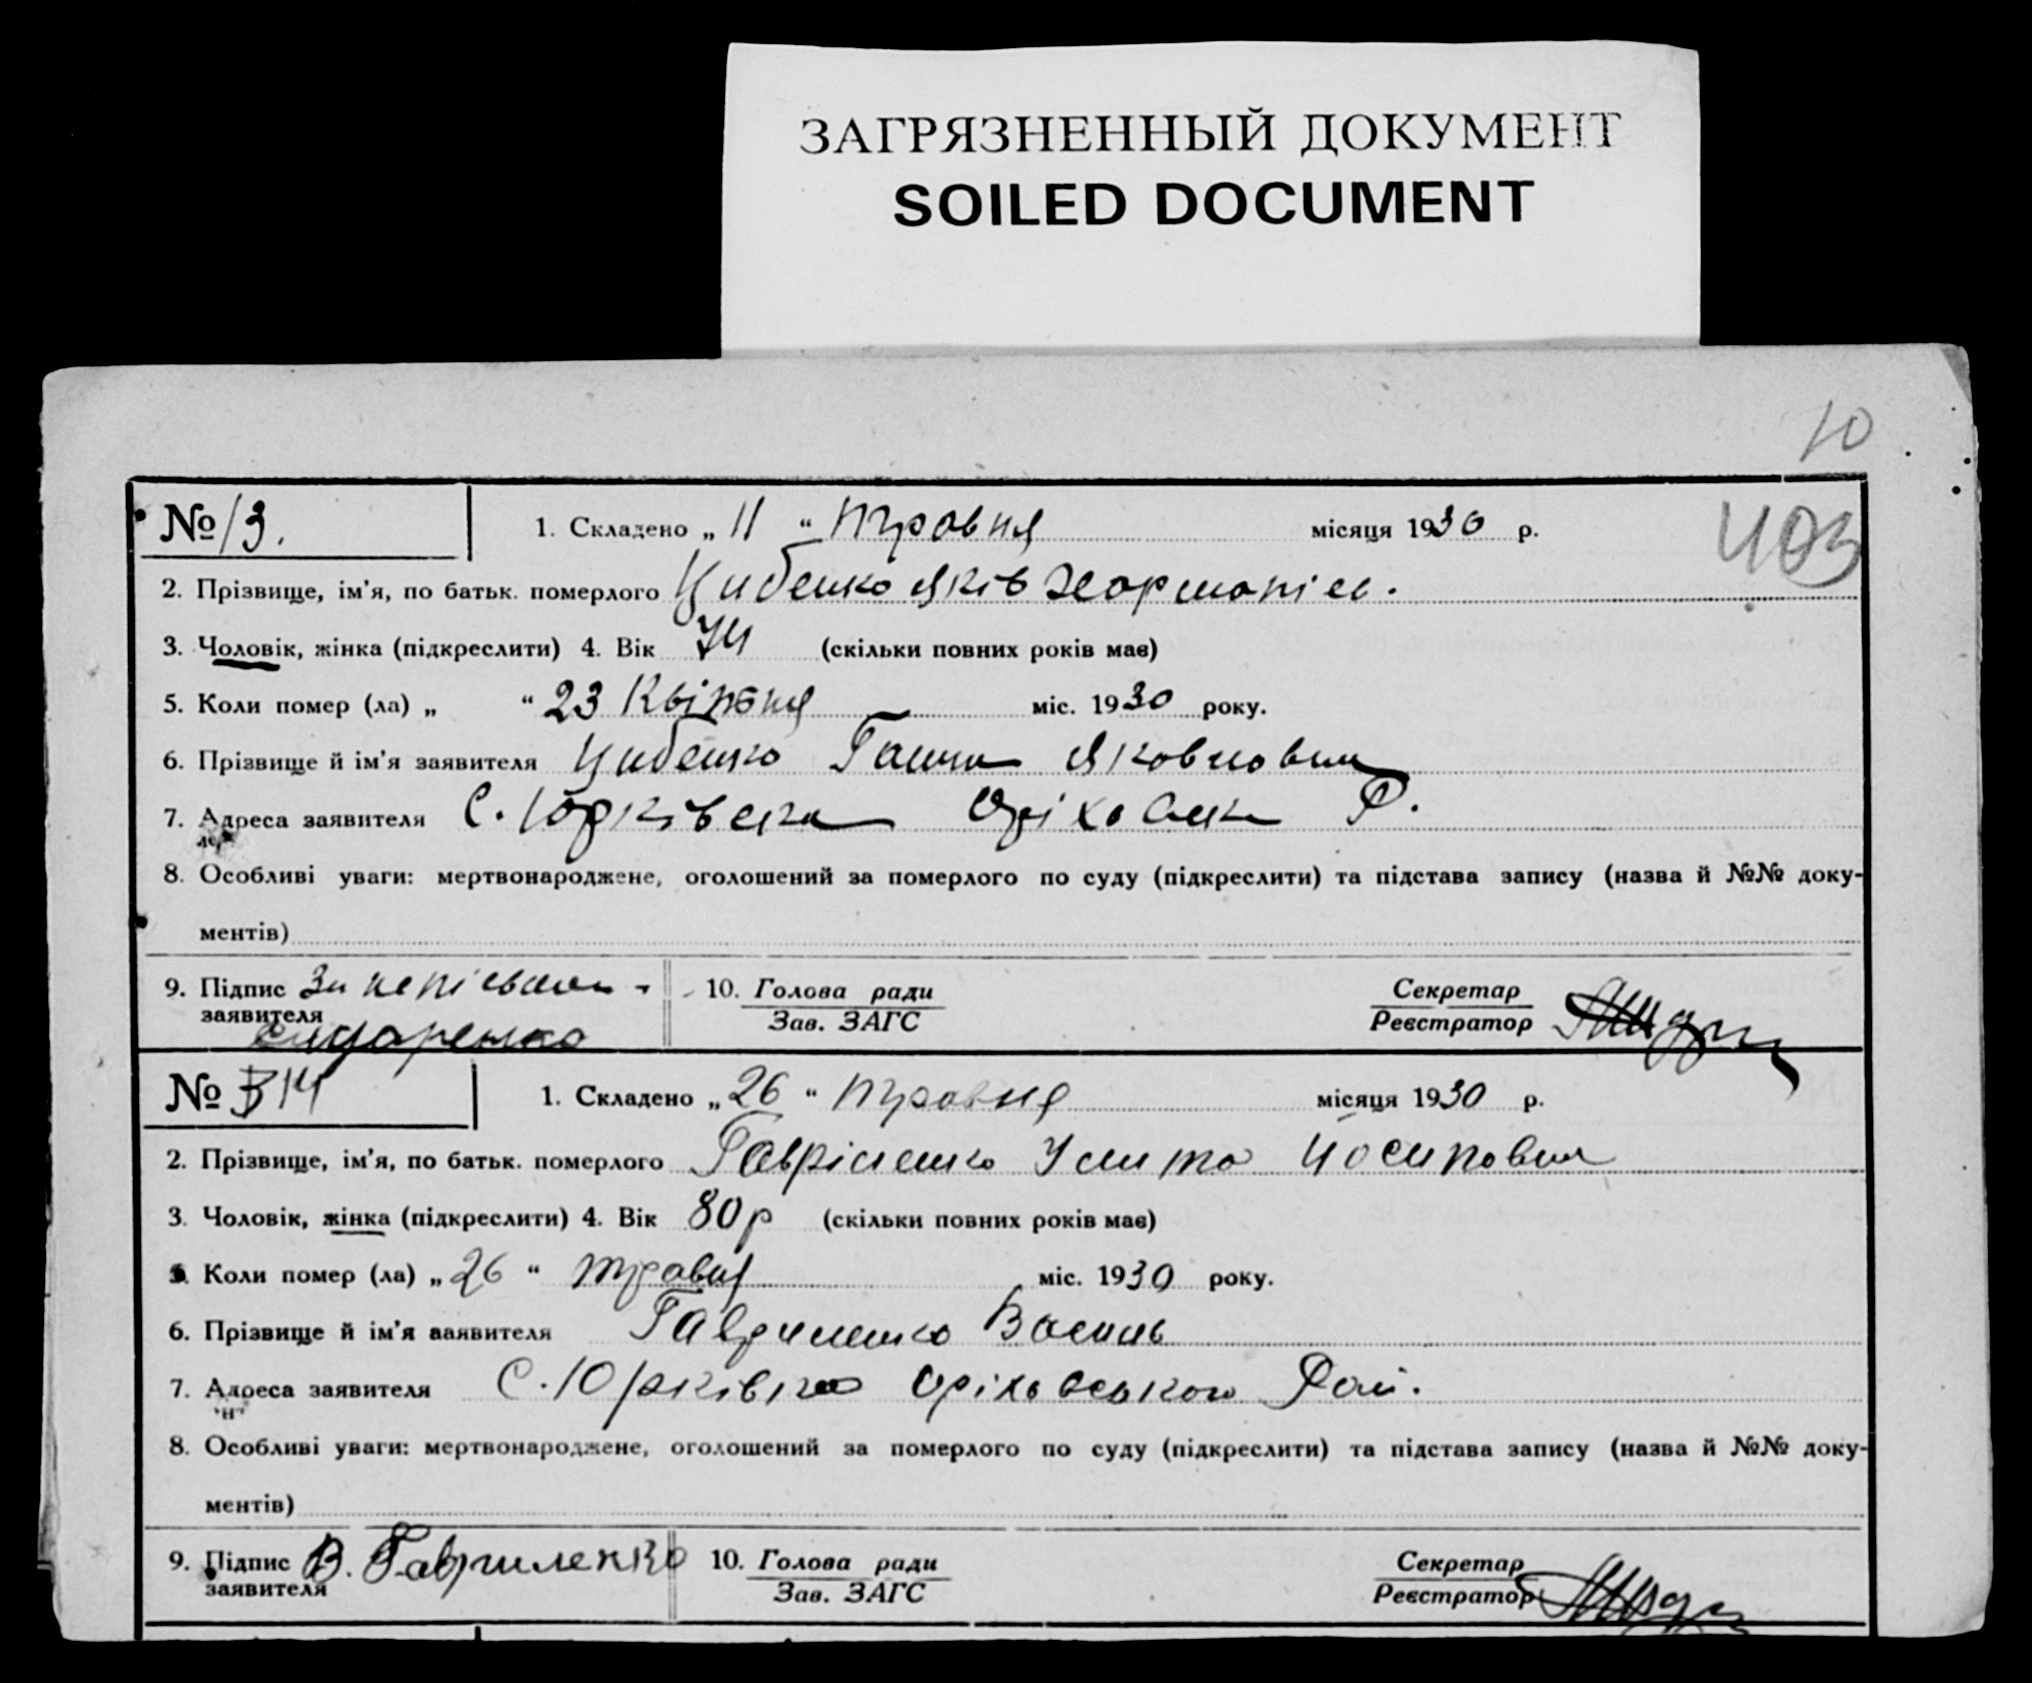 ЗАГРЯЗНЕННЫЙ ДОКУМЕНТ
SOILED DOCUMENT
10
403
№ 13. 1. Складено „ 11 “ травня місяця 1930 р.
2. Прізвище, ім'я, по батьк. померлого Цибенко Яків
3. Чоловік, жінка (підкреслити) 4. Вік 74 (скільки повних років має)
5. Коли помер (ла) „ “ 23 Квітня міс. 1930 року.
6. Прізвище й ім'я заявителя Цибенко Ганна Яковловна
7. Адреса заявителя С. Юрківка Оріховськ Р.
8. Особливі уваги: мертвонароджене, оголошений за померлого по суду (підкреслити) та підстава запису (назва й №№ доку-
ментів)
9. Підпис За неписьмен 10. Голова ради Секретар
заявителя Зав. ЗАГС Реєстратор
№ 14 1. Складено „ 26 “ травня місяця 1930 р.
2. Прізвище, ім'я, по батьк. померлого Гавріленко Улита Йосиповна
3. Чоловік, жінка (підкреслити) 4. Вік 80 р (скільки повних років має)
5. Коли помер (ла) „ 26 “ травня міс. 1930 року.
6. Прізвище й ім'я заявителя Гавриленко Василь
7. Адреса заявителя С. Юрківка Оріховського Рай.
"н"
8. Особливі уваги: мертвонароджене, оголошений за померлого по суду (підкреслити) та підстава запису (назва й №№ доку-
ментів)
9. Підпис В. Гавриленко 10. Голова ради Секретар
заявителя Зав. ЗАГС Реєстратор